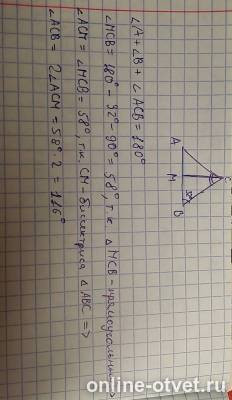 ∠A + ∠B + ∠ACB = 180°
∠MCB = 180° - 32° - 90° = 58°, т.к. △MCB - прямоугольный =>
∠ACM = ∠MCB = 58°, т.к. CM - биссектриса △ABC =>
∠ACB = 2∠ACM = 58° · 2 = 116°
A
M
B
C
online-otvet.ru